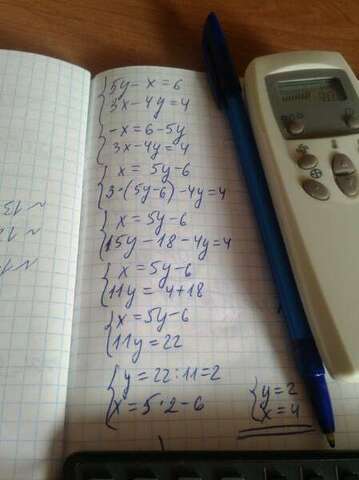 5y - x = 6
3x - 4y = 4
-x = 6 - 5y
3x - 4y = 4
x = 5y - 6
3·(5y-6) - 4y = 4
x = 5y - 6
15y - 18 - 4y = 4
x = 5y - 6
11y = 4 + 18
x = 5y - 6
11y = 22
y = 22 : 11 = 2
x = 5·2 - 6
y = 2
x = 4